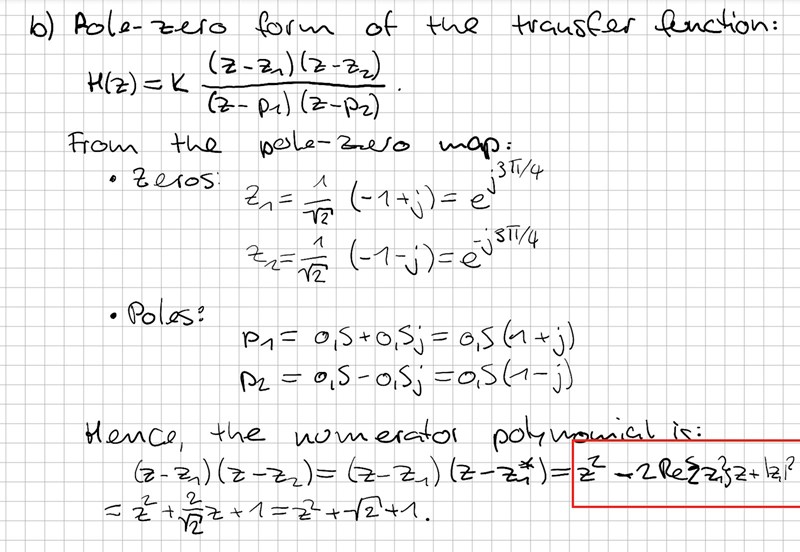 b) Pole-zero form of the transfer function:
H(z) = K (z-z1)(z-z2) / (z-p1)(z-p2) .
From the pole-zero map:
• Zeros:
z1 = 1/√2 (-1+j) = e^{j3π/4}
z2 = 1/√2 (-1-j) = e^{-j3π/4}
• Poles:
p1 = 0,5+0,5j = 0,5(1+j)
p2 = 0,5-0,5j = 0,5(1-j)
Hence, the numerator polynomial is:
(z-z1)(z-z2) = (z-z1)(z-z1*) = z² - 2Re{z1}z + |z1|²
= z² + 2/√2 z + 1 = z² + √2 + 1.